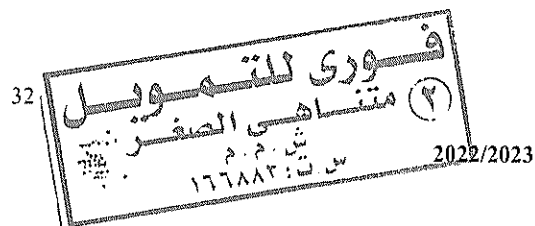 32
فورى للتمويل
متناهى الصغر (٢)
ش.م.م
س.ت: ١٦٦٨٨٣
2022/2023